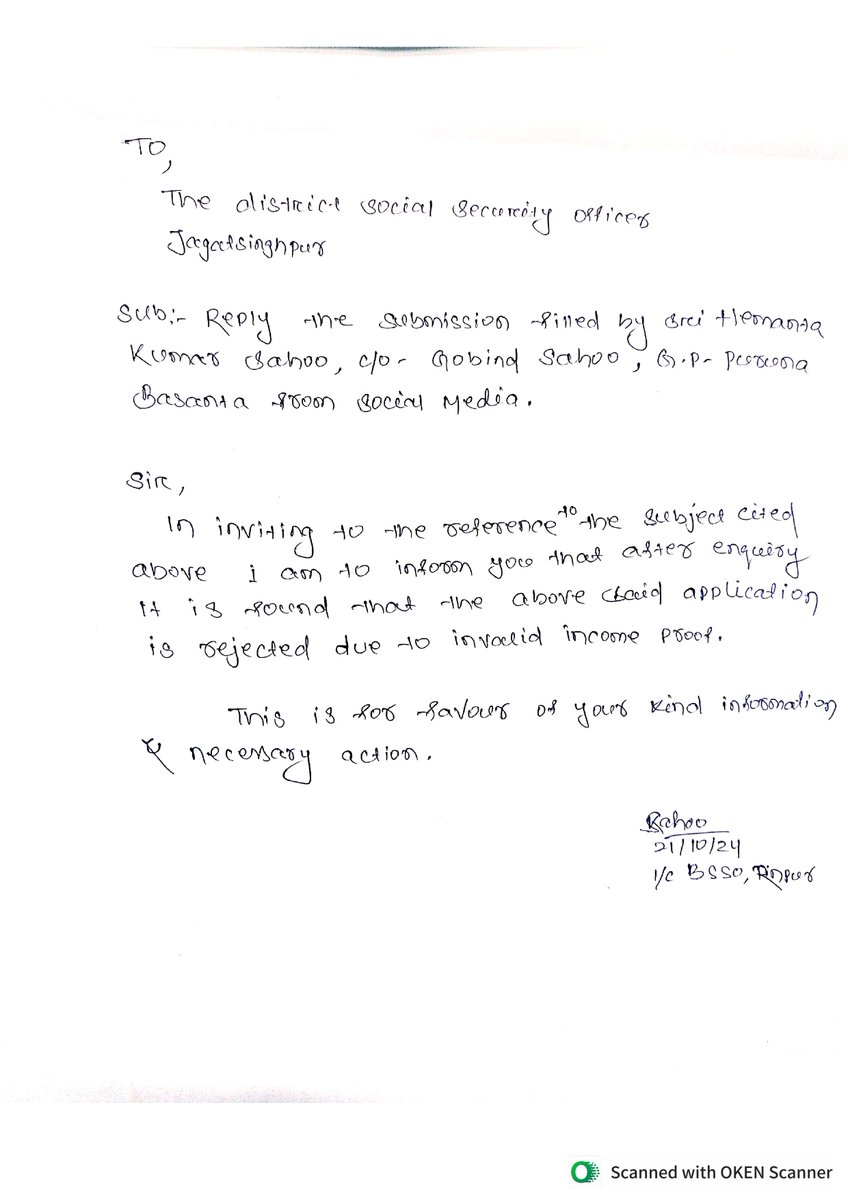 TO,
The district social security officer
Jagatsinghpur
Sub:- Reply the submission filled by Sri Hemanta
Kumar Sahoo, c/o- Gobind Sahoo, G.P- Puruna
Basanta from social Media.
Sir,
In inviting to the reference to the subject cited
above i am to inform you that after enquiry
it is found that the above said application
is rejected due to invalid income proof.
This is for favour of your kind information
& necessary action.
Sahoo
21/10/24
I/C BSSO,
Scanned with OKEN Scanner